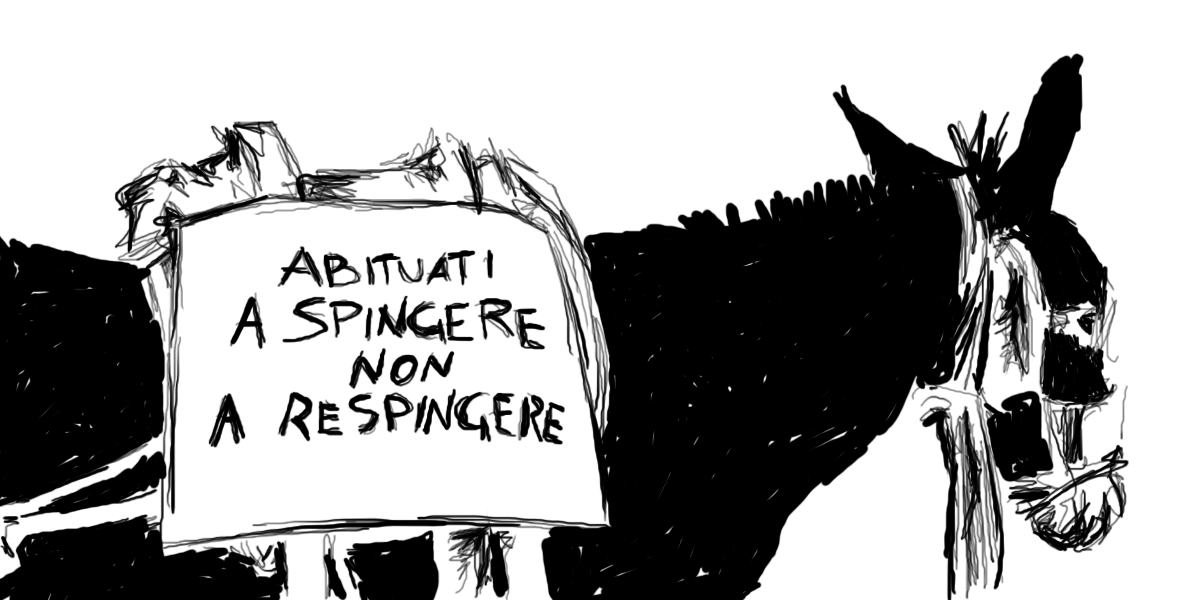 ABITUATI
A SPINGERE
NON
A RESPINGERE